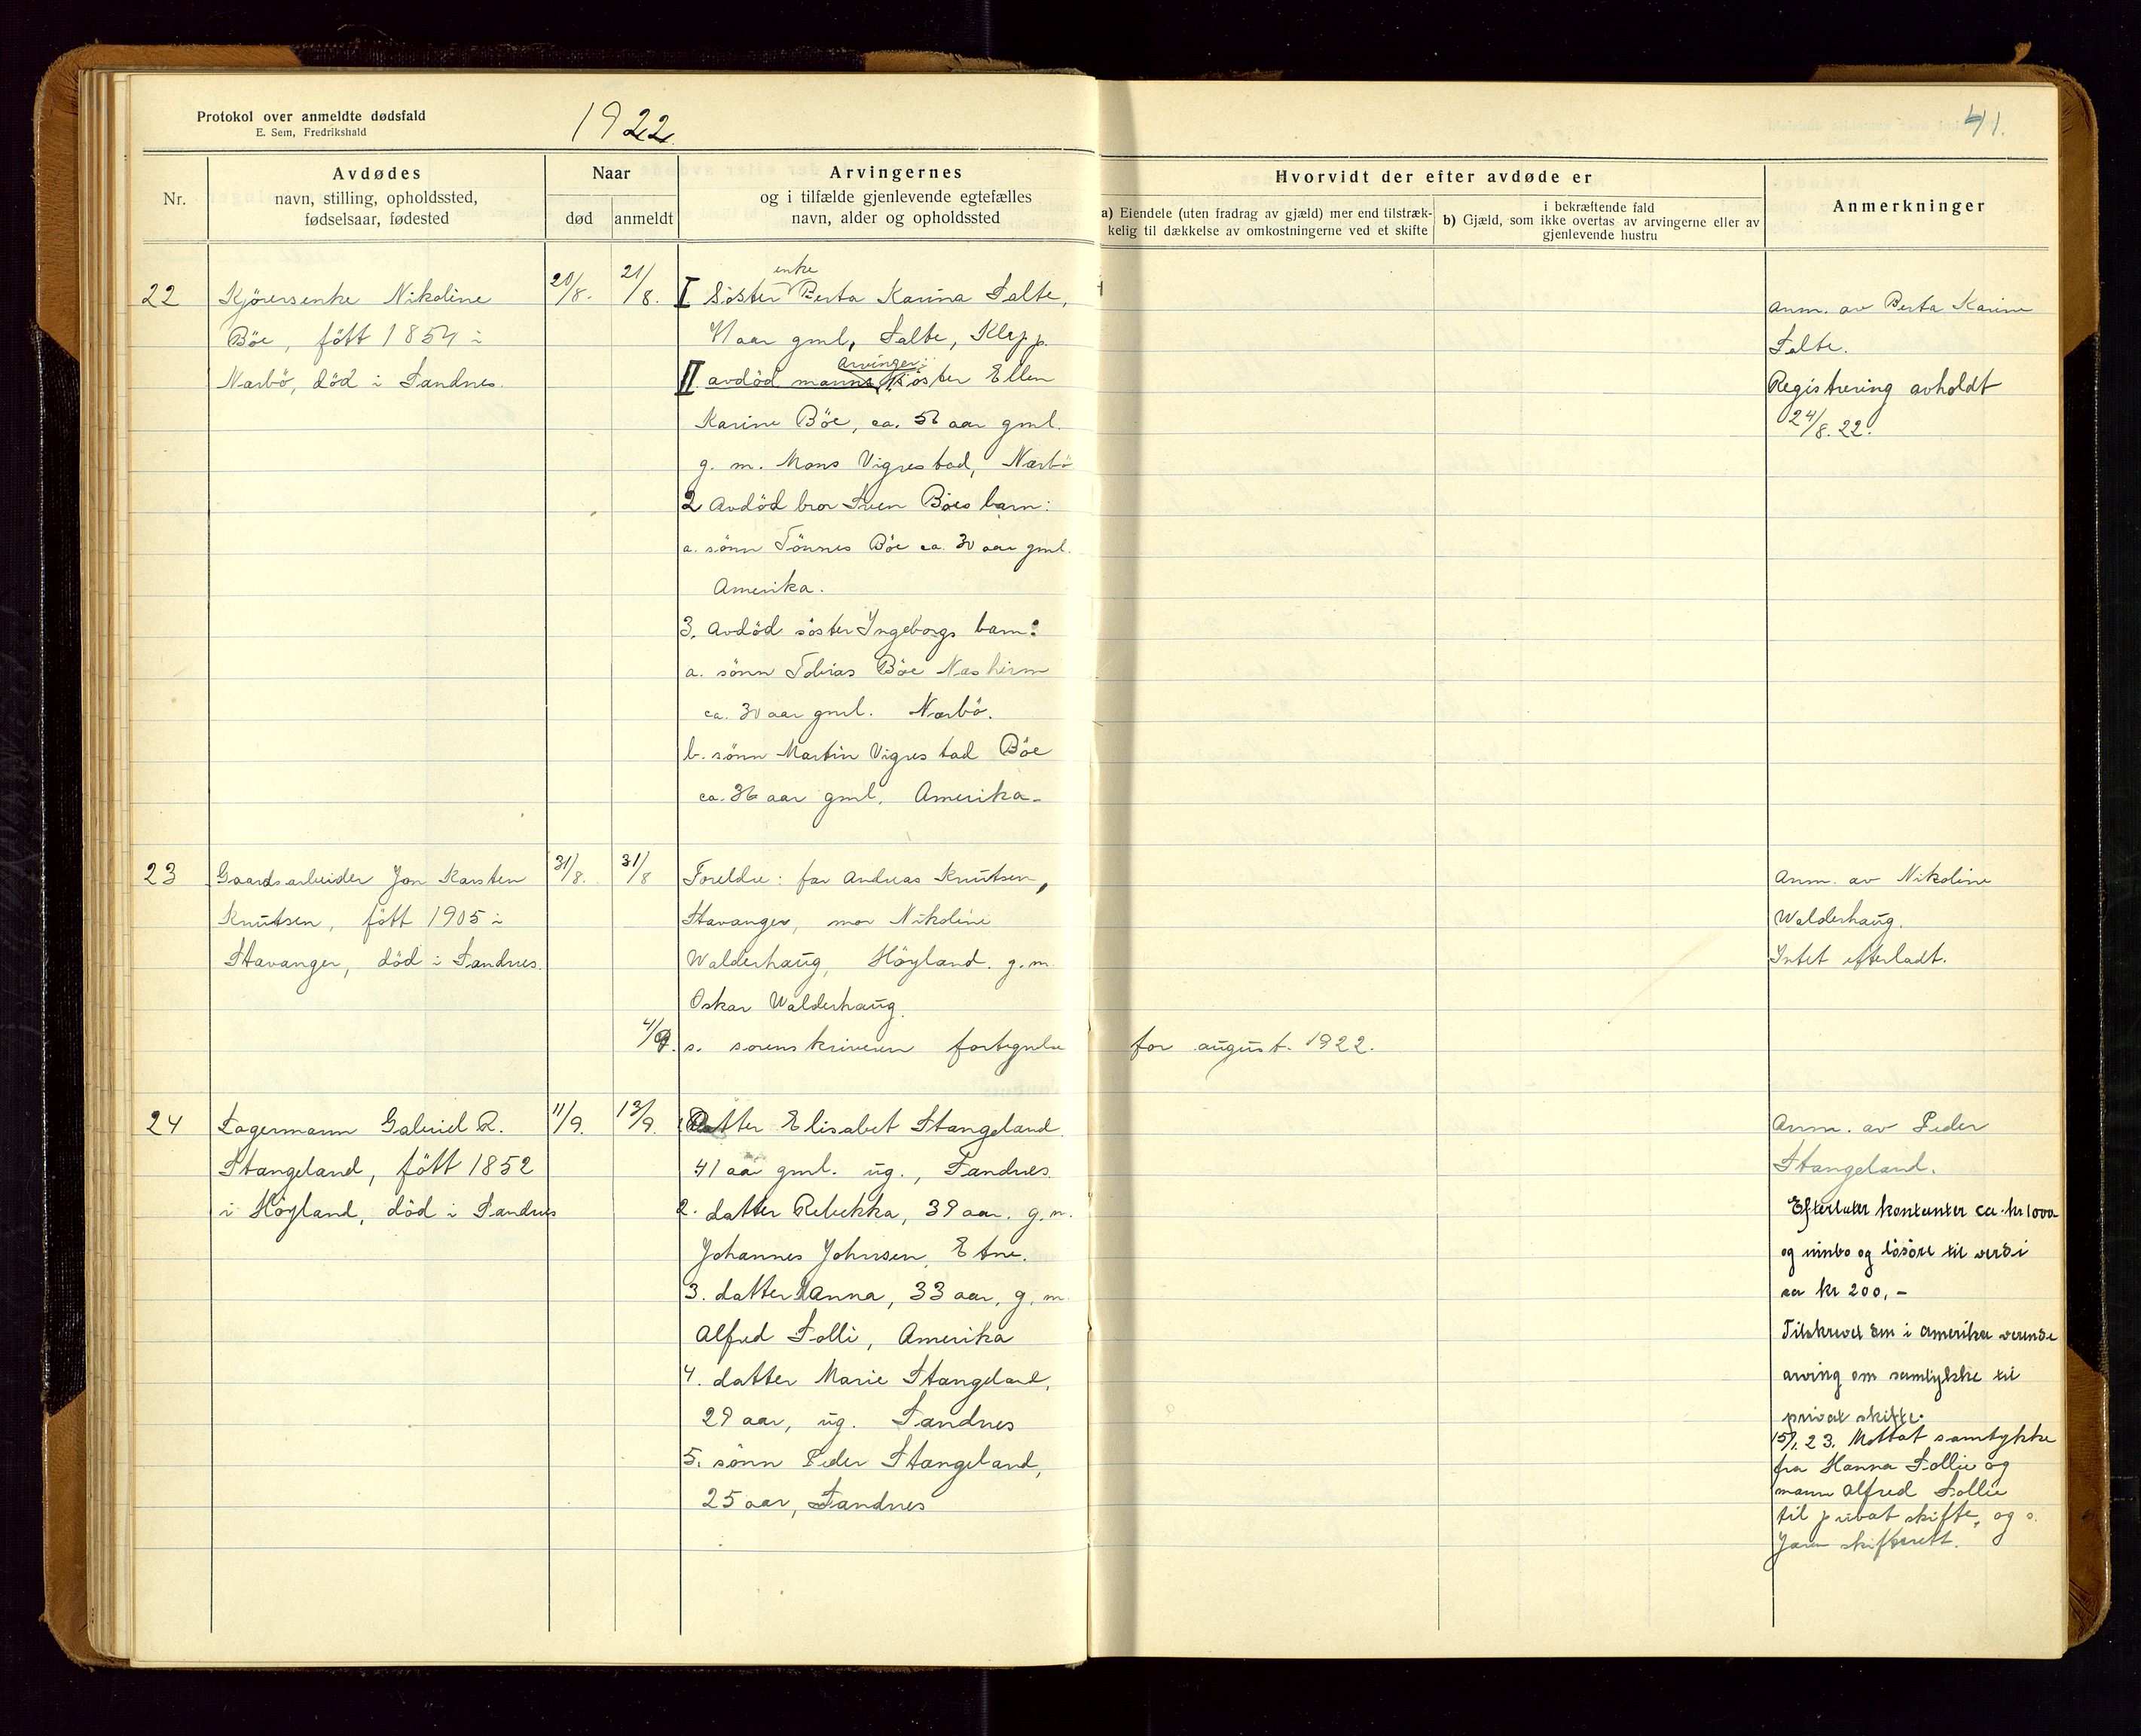 Protokol over anmeldte dødsfald
E. Sem, Fredrikshald
1922.
41.
Nr.
Avdødes
navn, stilling, opholdssted,
fødselsaar, fødested
Naar
død
anmeldt
Arvingernes
og i tilfælde gjenlevende egtefælles
navn, alder og opholdssted
Hvorvidt der efter avdøde er
a) Eiendele (uten fradrag av gjæld) mer end tilstræk-
kelig til dækkelse av omkostningerne ved et skifte
i bekræftende fald
b) Gjæld, som ikke overtas av arvingerne eller av
gjenlevende hustru
Anmerkninger
22
Kjörersenke Nikoline
Böe, fött 1854 i
Nærbö, död i Sandnes.
20/8.
21/8.
enke
I Söster Berta Karina Salte,
71 aar gml, Salte, Klepp.
Arvinger:
II avdöd manns söster Ellen
Karine Böe, ca. aar gml.
g. m. Mons Vigrestad, Nærbö
2 Avdöd bror Sven Böes barn:
a. sönn Tönnes Böe ca. 30 aar gml.
Amerika.
3. Avdöd söster Ingeborgs barn:
a. sönn Tobias Böe Næsheim
ca. 30 aar gml. Nærbö.
b. sönn Martin Vigrestad Böe
ca. 36 aar gml, Amerika.
Anm. av Berta Karine
Salte.
Registrering avholdt
24/8. 22.
23
Gaardsarbeider Jon Karsten
Knutsen, fött 1905 i
Stavanger, död i Sandnes.
31/8.
31/8
Foreldre: far Andreas Knutsen,
Stavanger, mor Nikoline
Walderhaug, Höyland. g. m.
Oskar Walderhaug.
4/9. s. sorenskriveren fortegnelse for august. 1922.
Anm. av Nikoline
Walderhaug.
Intet efterladt.
24
Lagermann Gabriel R.
Stangeland, fött 1852
i Höyland, död i Sandnes
11/9.
13/9.
1. Datter Elisabet Stangeland.
41 aar gml. ug., Sandnes.
2. datter Rebekka, 39 aar. g. m.
Johannes Johnsen, Etne.
3. datter Hanna, 33 aar, g. m.
Alfred Solli, Amerika
4. datter Marie Stangeland,
29 aar, ug. Sandnes
5. sönn Peder Stangeland,
25 aar, Sandnes
Anm. av Peder
Stangeland.
Efterlater kontanter ca. kr 1000
og innbo og lösöre til verdi
ca kr 200,-
Tilskrevet den i Amerika værende
arving om samtykke til
privat skifte.
15/1.23. Mottat samtykke
fra Hanna Sollie og
mann Alfred Sollie
til privat skifte, og s.
Jæren skifterett.